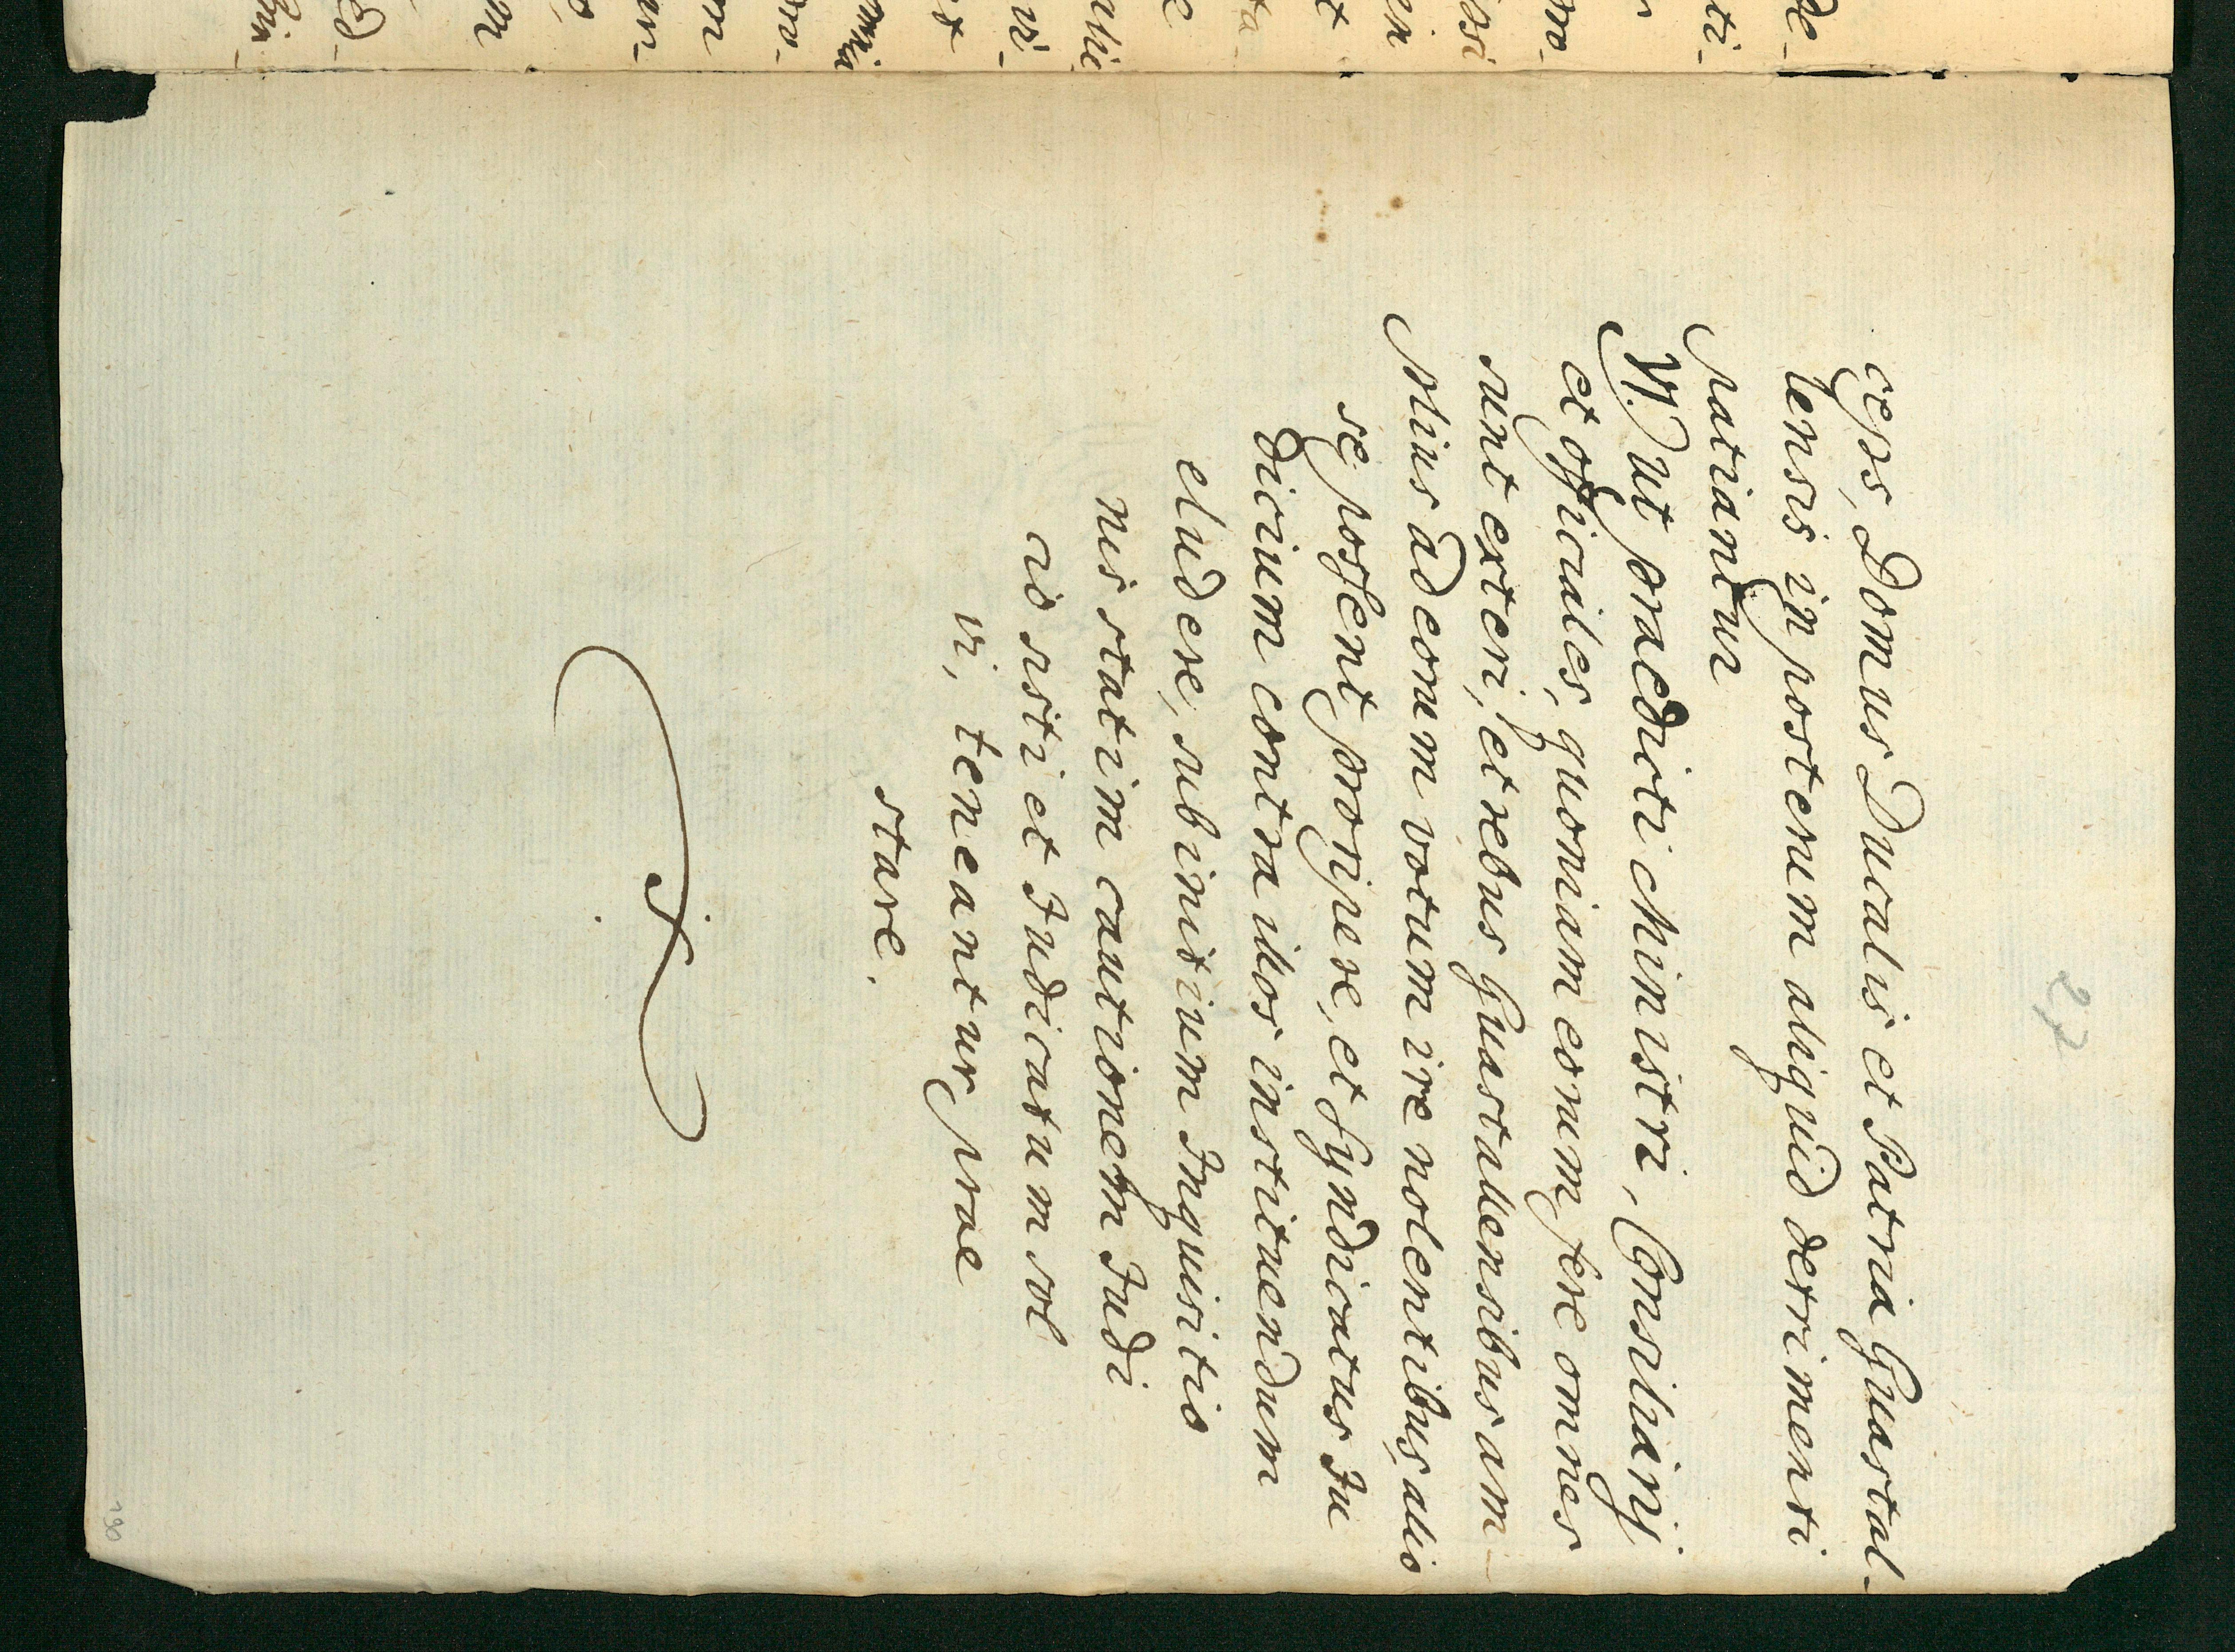 27
ceps, Domus Ducalis et Patria Guastal-
lensis in posterum aliquid detrimenti
patiantur
VI.) ut praedicti Ministri, Consiliarij
et officiales, quoniam eorum fere omnes
sunt exteri, et rebus Guastallensibus am-
plius ad eorum votum ire nolentibus, alio
se possent proripere, et Syndicatus Ju
dicium contra illos instituendum
eludere, sub initium Inquisitio
nis statim cautionem Judi
cio sisti et Judicatum sol
vi, teneantur prae
stare.
190